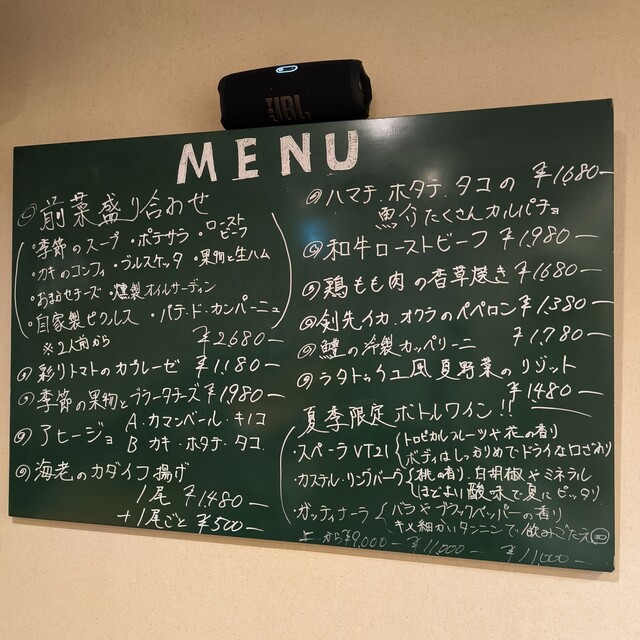 JBL
MENU
前菜盛り合わせ
・季節のスープ ・ポテサラ ・ローストビーフ
・カキのコンフィ ・ブルスケッタ ・果物と生ハム
・おまかせチーズ ・燻製オイルサーディン
・自家製ピクルス ・パテ・ド・カンパーニュ
※2人前から ¥2680-
彩りトマトのカプレーゼ ¥1,180-
季節の果物とブラータチーズ ¥1,980-
アヒージョ A.カマンベール・キノコ
B カキ・ホタテ・タコ
海老のカダイフ揚げ
1尾 ¥1,480-
+1尾ごと ¥500-
ハマチ.ホタテ.タコの ¥1,680-
魚介たくさんカルパチョ
和牛ローストビーフ ¥1,980-
鶏もも肉の香草焼き ¥1680-
剣先イカ.オクラのペペロン ¥1,380-
鱧の冷製カッペリーニ ¥1,780-
ラタトゥイユ風夏野菜のリゾット
¥1480-
夏季限定ボトルワイン!!
・スペーラVT21 トロピカルフルーツや花の香り
ボディはしっかりめでドライな口ざわり
・カステル・リングバーグ 桃の香り.白胡椒やミネラル
ほどよい酸味で夏にピッタリ
・ガッティナーラ バラやブラックペッパーの香り
キメ細かいタンニンで飲みごたえ
上から¥9,000- ¥11,000- ¥11,000-